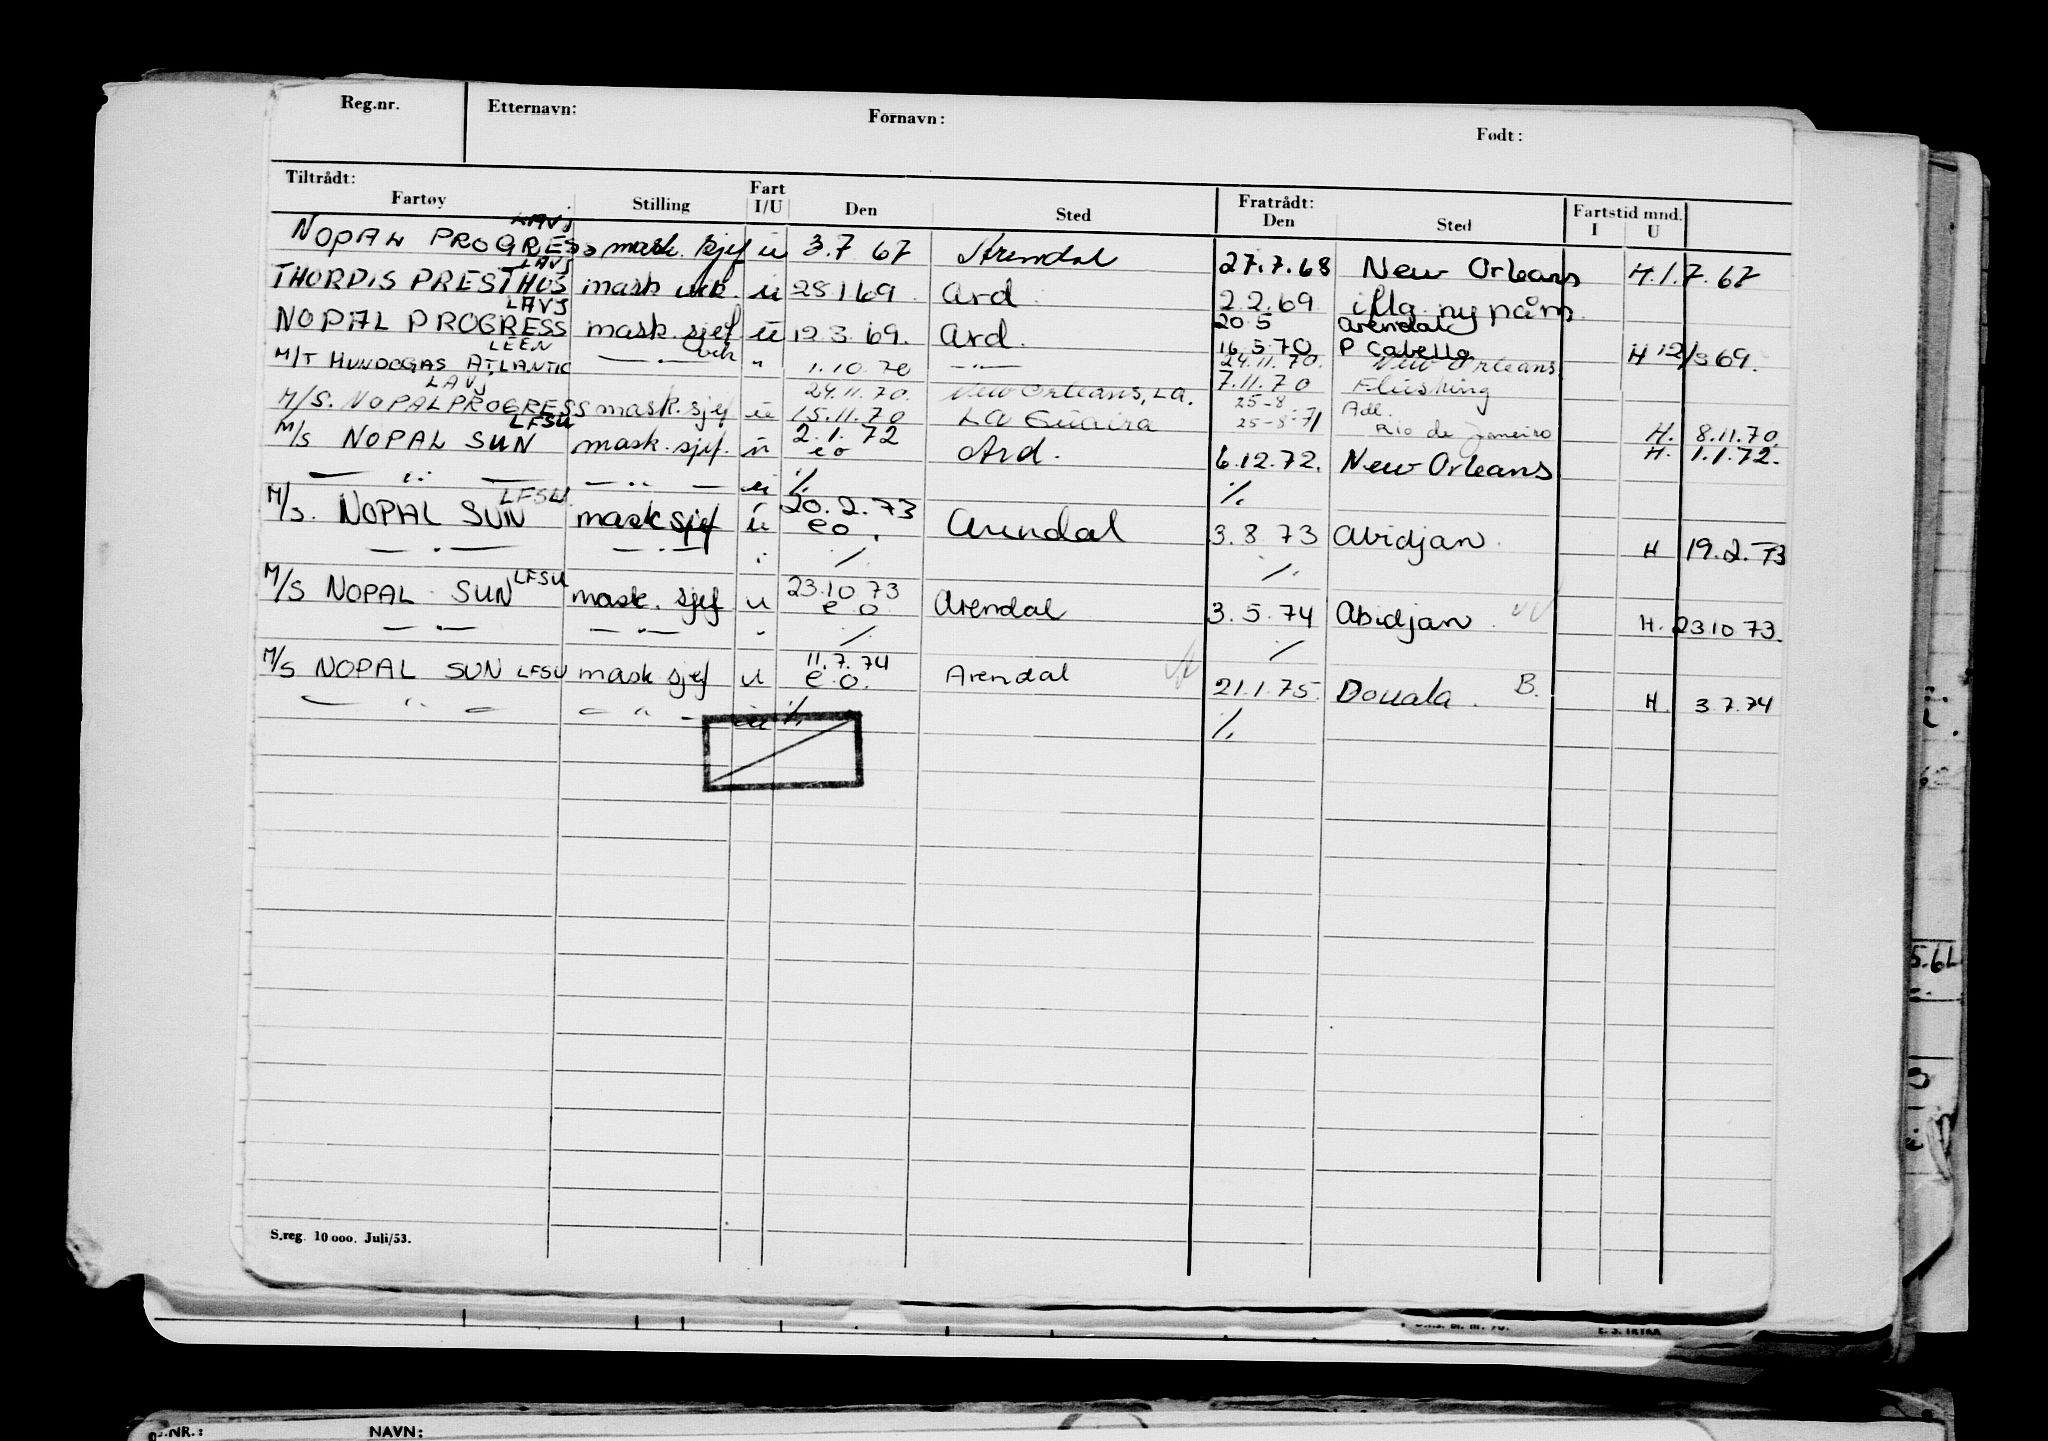 Reg.nr. Etternavn: Fornavn: Født:
Tiltrådt: Fartøy Stilling Fart I/U Den Sted Fratrådt: Den Sted Fartstid mnd. I U
LAVJ
NOPAL PROGRESS mask. sjef ü 3.7 67 Arendal 27.7.68 New Orleans H.1.7.67
LAVJ
THORDIS PRESTHUS mask vik. ü 28 1 69 Ard 2.2.69 iflg. ny påm.
LAVJ 20 5 Arendal
NOPAL PROGRESS mask. sjef ü 12.3.69. Ard. 16.5.70 P Cabello H 12/3 69.
LEEN vik 24.11.70. New Orleans
M/T HUNDOGAS ATLANTIC — . — " 1.10.70 — " — 7.11.70 Flushing
LAVJ 24.11.70. New Orleans, LA. 25-8 Adl.
M/S. NOPAL PROGRESS mask. sjef ü 15.11.70 LA Guaira 25-8-71 Rio de Janeiro H. 8.11.70.
LFSU 2.1.72
M/S NOPAL SUN mask. sjef. ü eo Ard. 6.12.72. New Orleans H. 1.1.72.
— " — — " — ü ./. ./.
LFSU 20.2.73
M/S. NOPAL SUN mask sjef ü eo. Arendal 3.8 73 Abidjan. H 19.2.73
— . — — . — ./. ./.
LFSU 23.10 73
M/S NOPAL SUN mask. sjef u e o Arendal 3.5.74 Abidjan. H. 23 10 73.
— . — — . — ./. ./.
11.7.74
M/S NOPAL SUN LFSU mask sjef u e.o. Arendal 21.1.75. Douala. B. H. 3.7.74
— " — — " — ü ./. ./.
S.reg. 10 000. Juli/53.
5.6
NR.: NAVN: